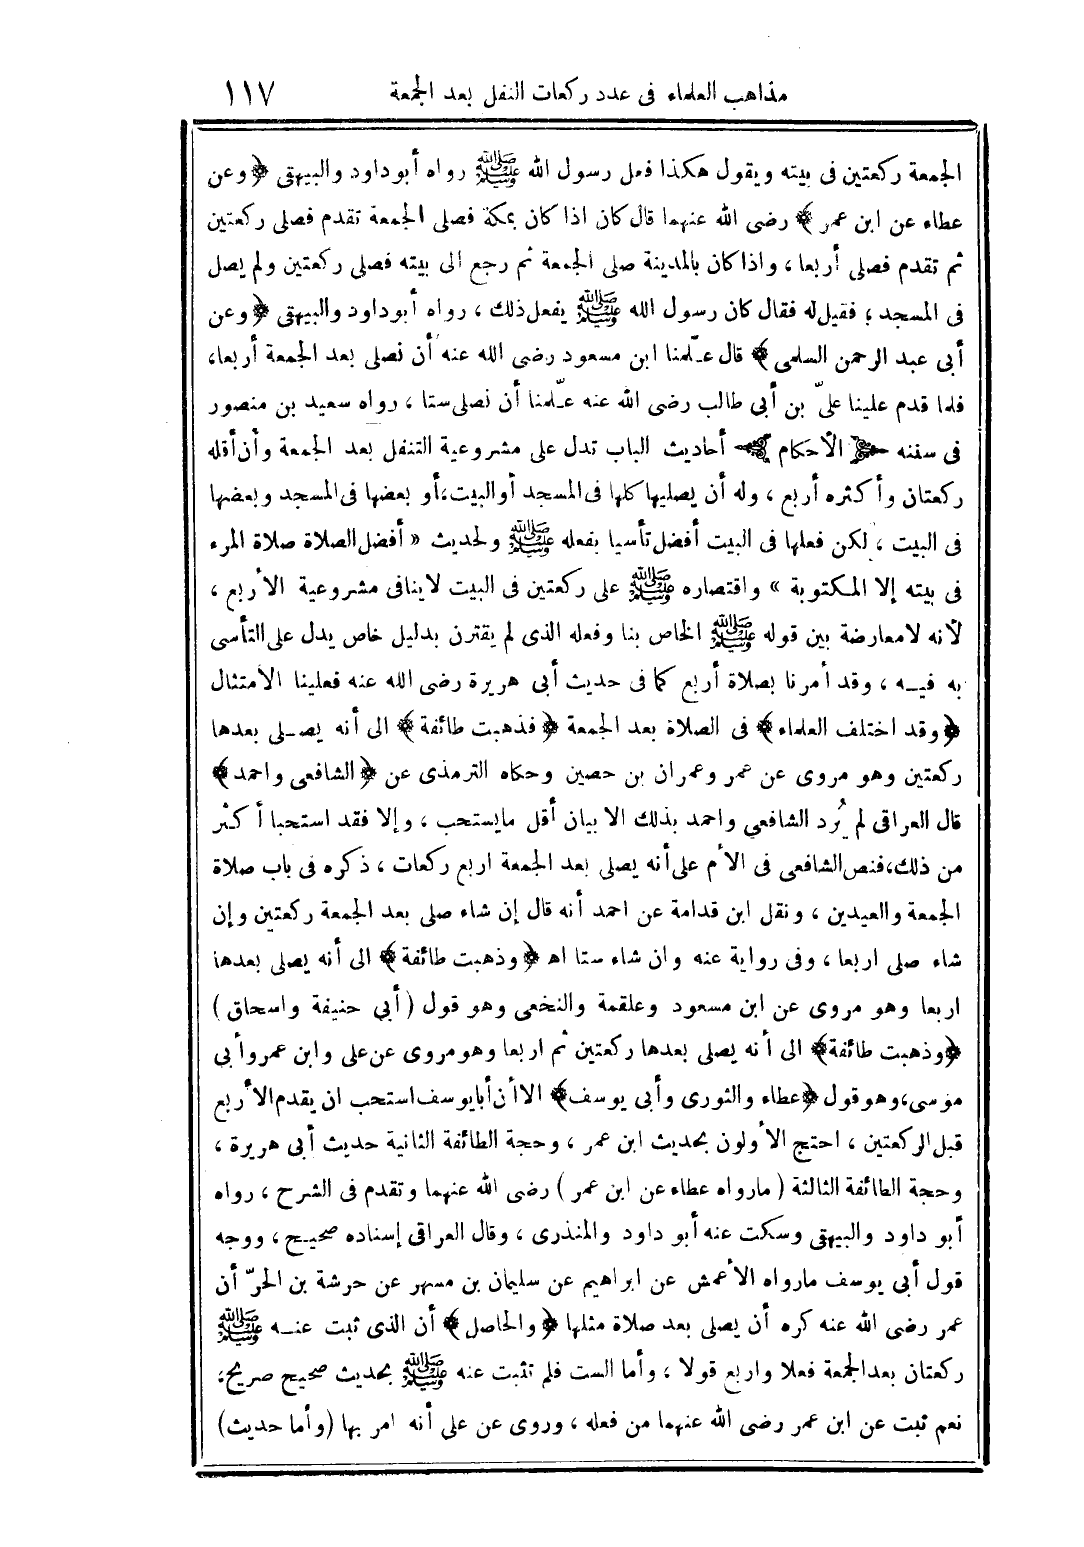 مذاهب العلماء فى عدد ركعات النفل بعد الجمعة ١١٧
الجمعة ركعتين فى بيته ويقول هكذا فعل رسول الله ﷺ رواه أبوداود والبيهقى ﴿وعن
عطاء عن ابن عمر﴾ رضى الله عنهما قال كان اذا كان بمكة فصلى الجمعة تقدم فصلى ركعتين
ثم تقدم فصلى أربعا، واذا كان بالمدينة صلى الجمعة ثم رجع الى بيته فصلى ركعتين ولم يصل
فى المسجد؛ فقيل له فقال كان رسول الله ﷺ يفعل ذلك، رواه أبوداود والبيهقى ﴿وعن
أبى عبد الرحمن السلمى﴾ قال علّمنا ابن مسعود رضى الله عنه أن نصلى بعد الجمعة أربعا،
فلما قدم علينا علىّ بن أبى طالب رضى الله عنه علّمنا أن نصلى ستا، رواه سعيد بن منصور
فى سننه ﴿الأحكام﴾ أحاديث الباب تدل على مشروعية التنفل بعد الجمعة وأن أقله
ركعتان وأكثره أربع، وله أن يصليها كلها فى المسجد أو البيت، أو بعضها فى المسجد وبعضها
فى البيت، لكن فعلها فى البيت أفضل تأسيا بفعله ﷺ ولحديث « أفضل الصلاة صلاة المرء
فى بيته إلا المكتوبة » واقتصاره ﷺ على ركعتين فى البيت لاينافى مشروعية الأربع،
لأنه لامعارضة بين قوله ﷺ الخاص بنا وفعله الذى لم يقترن بدليل خاص يدل على التأسى
به فيه، وقد أمرنا بصلاة أربع كما فى حديث أبى هريرة رضى الله عنه فعلينا الأمتثال
﴿وقد اختلف العلماء﴾ فى الصلاة بعد الجمعة ﴿فذهبت طائفة﴾ الى أنه يصلى بعدها
ركعتين وهو مروى عن عمر وعمران بن حصين وحكاه الترمذى عن ﴿الشافعى واحمد﴾
قال العراقى لم يُرد الشافعى واحمد بذلك الا بيان أقل مايستحب، وإلا فقد استحبا أكثر
من ذلك، فنص الشافعى فى الأم على أنه يصلى بعد الجمعة اربع ركعات، ذكره فى باب صلاة
الجمعة والعيدين، ونقل ابن قدامة عن احمد أنه قال إن شاء صلى بعد الجمعة ركعتين وإن
شاء صلى اربعا، وفى رواية عنه وان شاء ستا اه ﴿وذهبت طائفة﴾ الى أنه يصلى بعدها
اربعا وهو مروى عن ابن مسعود وعلقمة والنخعى وهو قول (أبى حنيفة واسحاق)
﴿وذهبت طائفة﴾ الى أنه يصلى بعدها ركعتين ثم اربعا وهومروى عن على وابن عمر وأبى
موسى، وهو قول ﴿عطاء والثورى وأبى يوسف﴾ الا أن أبايوسف استحب ان يقدم الأربع
قبل الركعتين، احتج الأولون بحديث ابن عمر، وحجة الطائفة الثانية حديث أبى هريرة،
وحجة الطائفة الثالثة (مارواه عطاء عن ابن عمر) رضى الله عنهما وتقدم فى الشرح، رواه
أبو داود والبيهقى وسكت عنه أبو داود والمنذرى، وقال العراقى إسناده صحيح، ووجه
قول أبى يوسف مارواه الأعمش عن ابراهيم عن سليمان بن مسهر عن حرشة بن الحرّ أن
عمر رضى الله عنه كره أن يصلى بعد صلاة مثلها ﴿والحاصل﴾ أن الذى ثبت عنه ﷺ
ركعتان بعد الجمعة فعلا واربع قولا، وأما الست فلم تثبت عنه ﷺ بحديث صحيح صريح،
نعم ثبت عن ابن عمر رضى الله عنهما من فعله، وروى عن على أنه امر بها (وأما حديث)